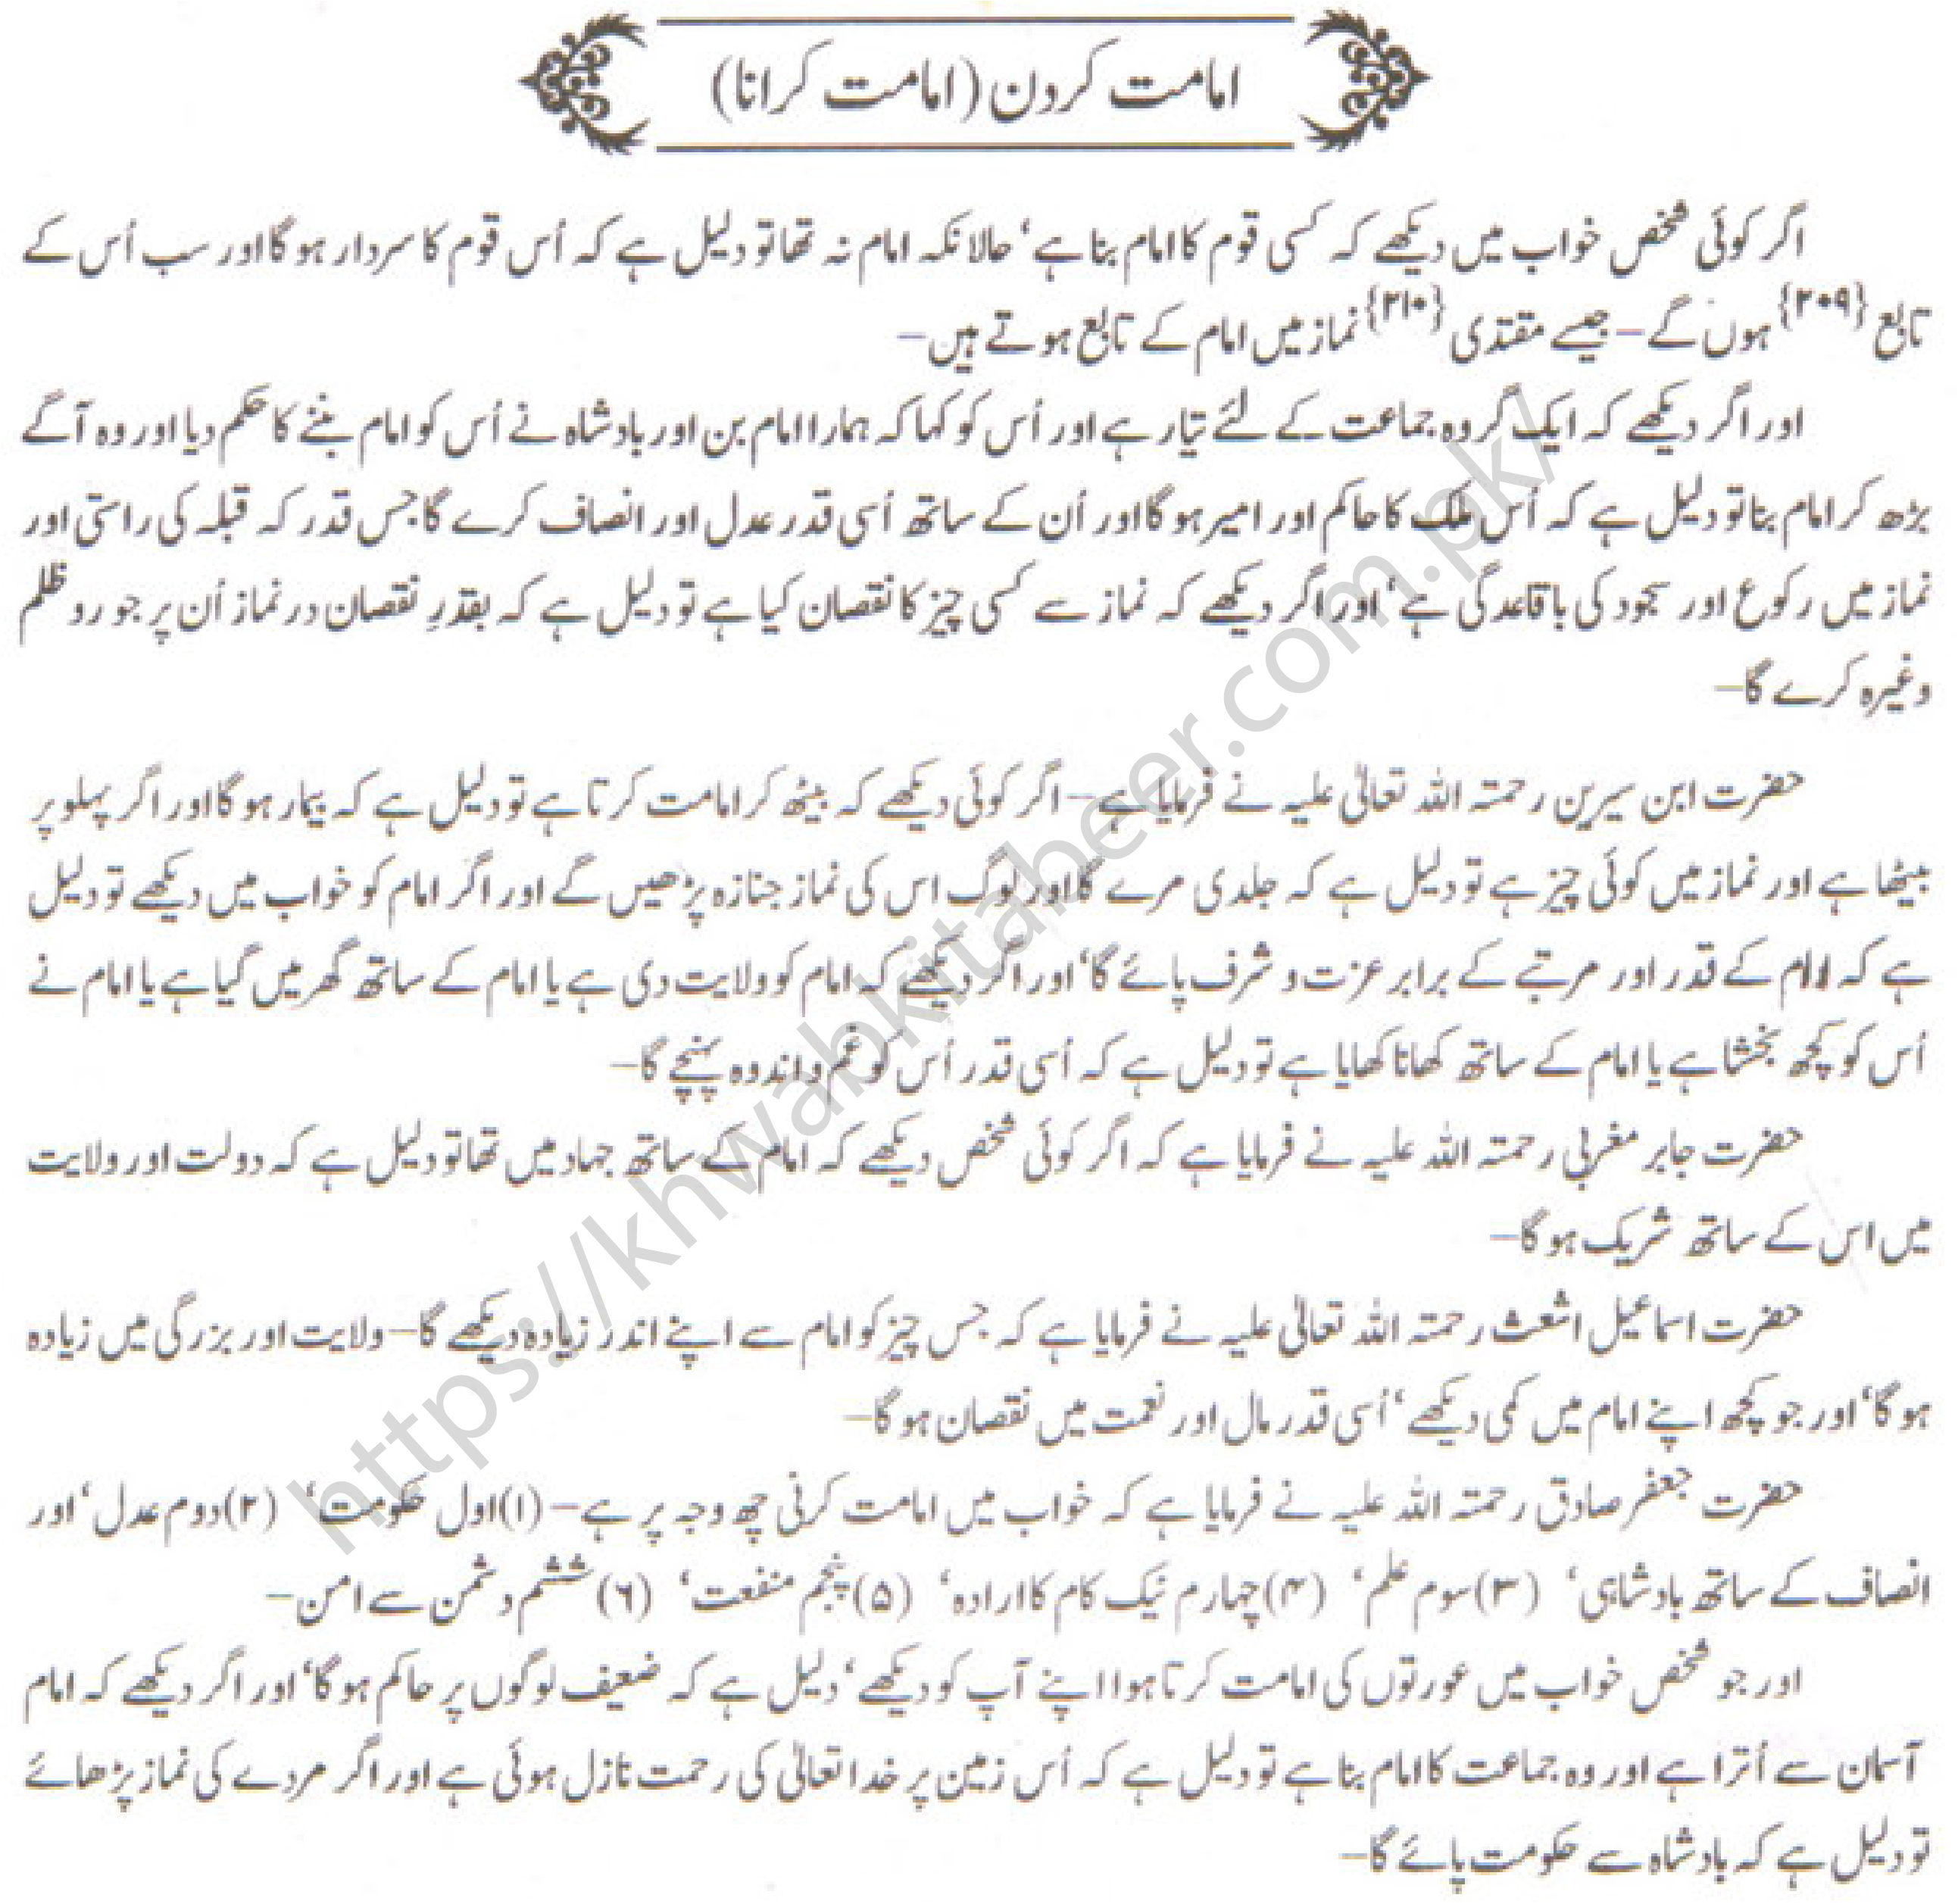 امامت کردن (امامت کرانا)
اگر کوئی شخص خواب میں دیکھے کہ کسی قوم کا امام بنا ہے‘ حالانکہ امام نہ تھا تو دلیل ہے کہ اُس قوم کا سردار ہو گا اور سب اُس کے
تابع {۲۰۹} ہوں گے– جیسے مقتدی {۲۱۰} نماز میں امام کے تابع ہوتے ہیں–
اور اگر دیکھے کہ ایک گروہ جماعت کے لئے تیار ہے اور اُس کو کہا کہ ہمارا امام بن اور بادشاہ نے اُس کو امام بننے کا حکم دیا اور وہ آگے
بڑھ کر امام بنا تو دلیل ہے کہ اُس ملک کا حاکم اور امیر ہو گا اور اُن کے ساتھ اُسی قدر عدل اور انصاف کرے گا جس قدر کہ قبلہ کی راستی اور
نماز میں رکوع اور سجود کی باقاعدگی ہے‘ اور اگر دیکھے کہ نماز سے کسی چیز کا نقصان کیا ہے تو دلیل ہے کہ بقدرِ نقصان در نماز اُن پر جور و ظلم
وغیرہ کرے گا–
حضرت ابن سیرین رحمتہ اللہ تعالیٰ علیہ نے فرمایا ہے– اگر کوئی دیکھے کہ بیٹھ کر امامت کرتا ہے تو دلیل ہے کہ بیمار ہو گا اور اگر پہلو پر
بیٹھا ہے اور نماز میں کوئی چیز ہے تو دلیل ہے کہ جلدی مرے گا اور لوگ اس کی نماز جنازہ پڑھیں گے اور اگر امام کو خواب میں دیکھے تو دلیل
ہے کہ امام کے قدر اور مرتبے کے برابر عزت و شرف پائے گا‘ اور اگر دیکھے کہ امام کو ولایت دی ہے یا امام کے ساتھ گھر میں گیا ہے یا امام نے
اُس کو کچھ بخشا ہے یا امام کے ساتھ کھانا کھایا ہے تو دلیل ہے کہ اُسی قدر اُس کو غم و اندوہ پہنچے گا–
حضرت جابر مغربی رحمتہ اللہ علیہ نے فرمایا ہے کہ اگر کوئی شخص دیکھے کہ امام کے ساتھ جہاد میں تھا تو دلیل ہے کہ دولت اور ولایت
میں اس کے ساتھ شریک ہو گا–
حضرت اسماعیل اشعث رحمتہ اللہ تعالیٰ علیہ نے فرمایا ہے کہ جس چیز کو امام سے اپنے اندر زیادہ دیکھے گا– ولایت اور بزرگی میں زیادہ
ہو گا‘ اور جو کچھ اپنے امام میں کمی دیکھے‘ اُسی قدر مال اور نعمت میں نقصان ہو گا–
حضرت جعفر صادق رحمتہ اللہ علیہ نے فرمایا ہے کہ خواب میں امامت کرنی چھ وجہ پر ہے– (۱) اول حکومت‘ (۲) دوم عدل‘ اور
انصاف کے ساتھ بادشاہی‘ (۳) سوم علم‘ (۴) چہارم نیک کام کا ارادہ‘ (۵) پنجم منفعت‘ (۶) ششم دشمن سے امن–
اور جو شخص خواب میں عورتوں کی امامت کرتا ہوا اپنے آپ کو دیکھے‘ دلیل ہے کہ ضعیف لوگوں پر حاکم ہو گا‘ اور اگر دیکھے کہ امام
آسمان سے اُترا ہے اور وہ جماعت کا امام بنا ہے تو دلیل ہے کہ اُس زمین پر خدا تعالیٰ کی رحمت نازل ہوئی ہے اور اگر مردے کی نماز پڑھائے
تو دلیل ہے کہ بادشاہ سے حکومت پائے گا–
https://khwabkitabeer.com.pk/